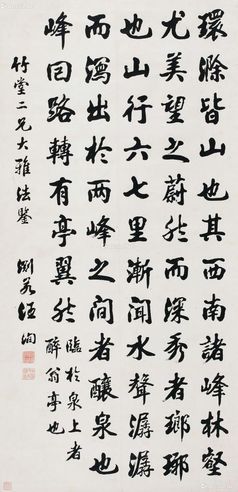 環滁皆山也其西南諸峰林壑
尤美望之蔚然而深秀者瑯琊
也山行六七里漸聞水聲潺潺
而瀉出於兩峰之間者釀泉也
峰回路轉有亭翼然
臨於泉上者
醉翁亭也
竹堂二兄大雅法鑒
淵若汪洵